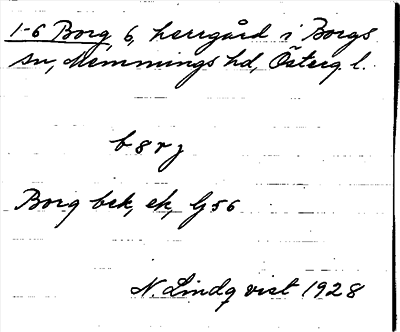 1-6 Borg, 6, herrgård i Borgs
sn, Memmings hd, Österg. l.
b8rj
Borg bek, ek, G56
N. Lindqvist 1928